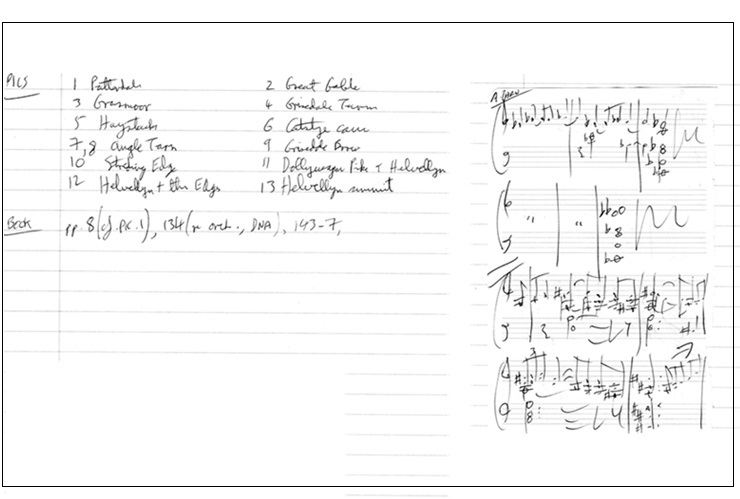 PICS
1 Patterdale 2 Great Gable
3 Grasmoor 4 Grisedale Tarn
5 Haystacks 6 Catstye cam
7,8 Angle Tarn 9 Grisedale Brow
10 Striding Edge 11 Dollywagon Pike & Helvellyn
12 Helvellyn + the Edges 13 Helvellyn summit
Beck pp. 8 (cf. pic. 1), 134 (n orch., DNA), 143-7,